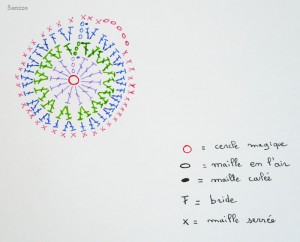 Sanzzo
= cercle magique
= maille en l'air
= maille coulée
= bride
x = maille serrée